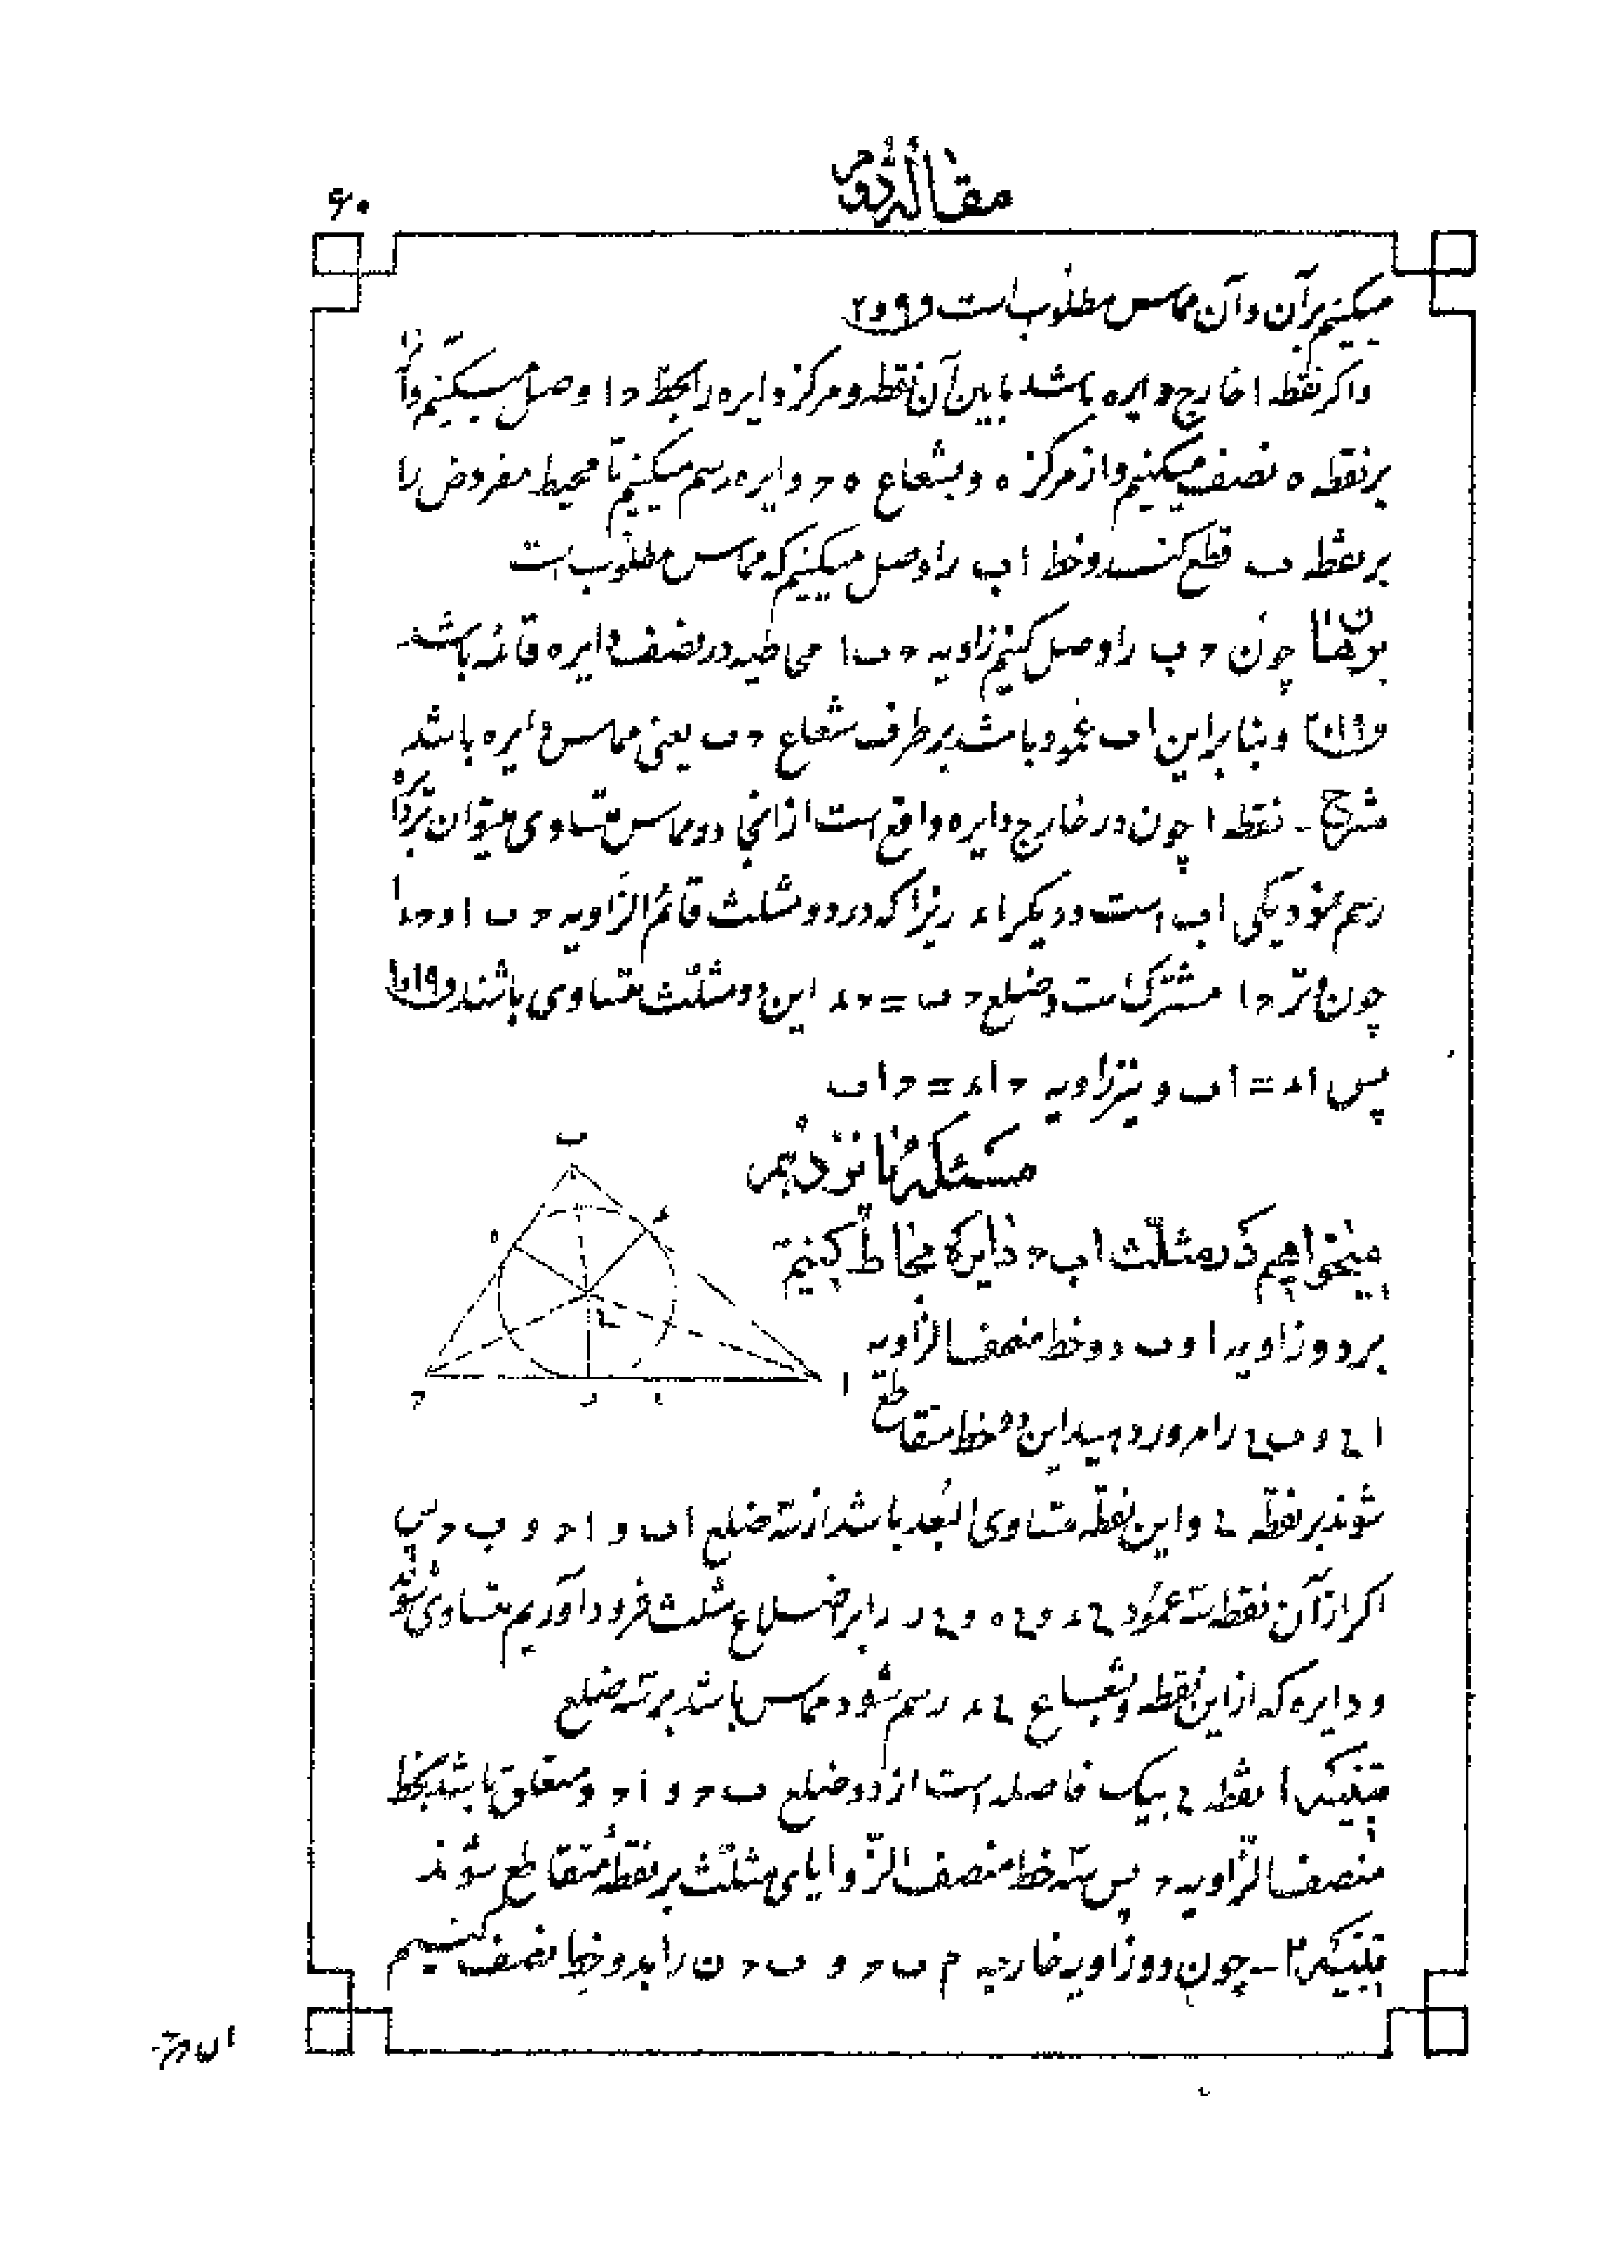 مقالهٔ دوم
۶۰
میکنیم بر آن و آن مماس مطلوب است و ۹ و ۲
و اکر نقطه ا خارج دایره باشد مابین آن نقطه و مرکز دایره را بخط ح ا وصل میکنیم و آنرا
بر نقطه ه نصف میکنیم و از مرکز ه و بشعاع ه ح دایره رسم میکنیم تا محیط مفروض را
بر نقطه ب قطع کند و خط ا ب را وصل میکنیم که مماس مطلوب است
برهان چون ح ب را وصل کنیم زاویه ح ب ا محاطیه در نصف دایره قائمه باشد
و بنا براین ا ب عمود باشد بر طرف شعاع ح ب یعنی مماس دایره باشد
شرح ـ نقطه ا چون در خارج دایره واقع است از انجا دو مماس متساوی میتوان بر دایره
رسم نمود یکی ا ب است و دیکر ا د زیرا که در دو مثلث قائم الزاویه ح ب ا و ح د ا
چون وتر ح ا مشترک است و ضلع ح ب = ح د این دو مثلث متساوی باشند و ۱۹ و ۱
پس ا د = ا ب و نیز زاویه ح ا د = ح ا ب
مسئله پانزدهم
میخواهیم در مثلث ا ب ح دایره محاط کنیم
بر دو زاویه ا و ب دو خط منصف الزاویه
ا ع و ب ع را مرور دهید این دو خط متقاطع
شوند بر نقطه ع و این نقطه متساوی البعد باشد از سه ضلع ا ب و ا ح و ب ح پس
اکر از آن نقطه سه عمود ع د و ع ه و ع ر را بر اضلاع مثلث فرود آوریم متساوی شوند
و دایره که از این نقطه و بشعاع ع د رسم شود مماس باشد بر سه ضلع
تنبیه ۱ نقطه ع بیک فاصله است از دو ضلع ب ح و ا ح و متعلق باشد بخط
منصف الزاویه ح پس سه خط منصف الزوایای مثلث بر نقطهٔ متقاطع شوند
تنبیه ۲ ـ چون دو زاویه خارجه م ب ح و ب ح ن را بدو خط نصف کنیم
ب
د
ه
ع
ح
ر
ا